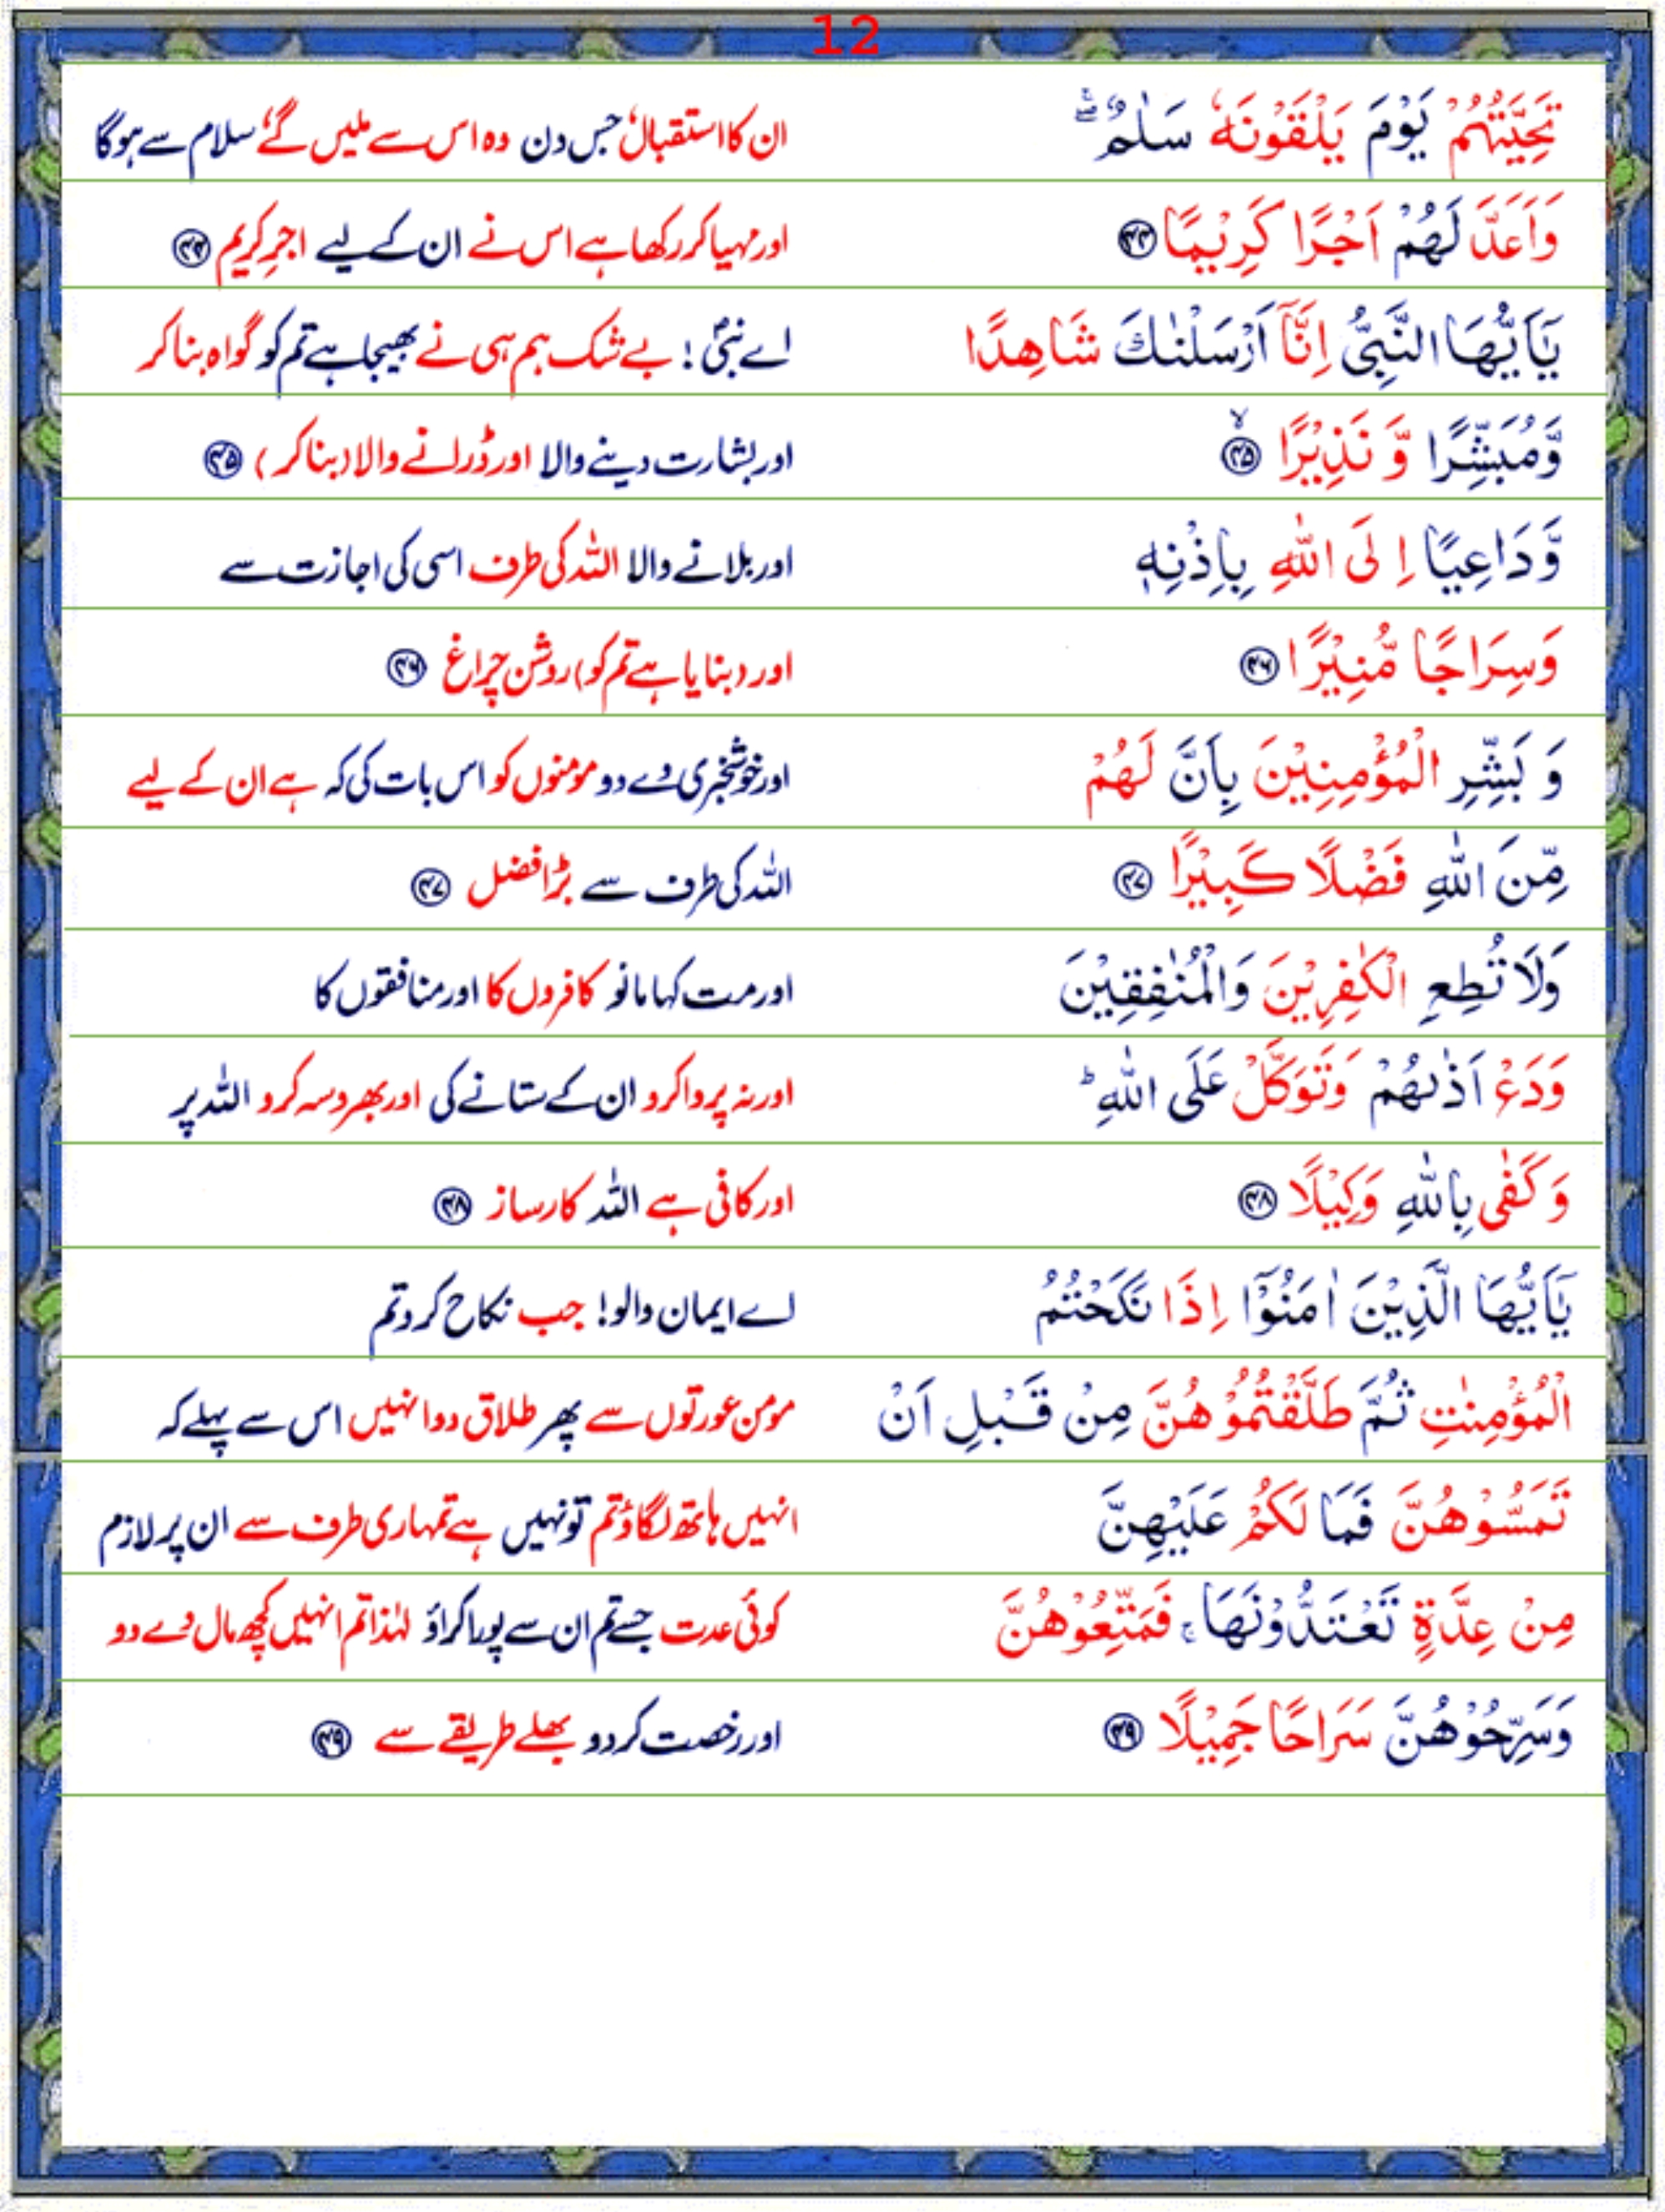 12
تَحِيَّتُهُمْ يَوْمَ يَلْقَوْنَهٗ سَلٰمٌ ۖۚ ان کا استقبال، جس دن وہ اس سے ملیں گے، سلام سے ہوگا
وَاَعَدَّ لَهُمْ اَجْرًا كَرِيْمًا ۴۴ اور مہیا کر رکھا ہے اس نے ان کے لیے اجرِ کریم ۴۴
يٰۤاَيُّهَا النَّبِىُّ اِنَّاۤ اَرْسَلْنٰكَ شَاهِدًا اے نبیؐ! بے شک ہم ہی نے بھیجا ہے تم کو گواہ بنا کر
وَّمُبَشِّرًا وَّ نَذِيْرًا ۙ۴۵ اور بشارت دینے والا اور ڈرانے والا (بنا کر) ۴۵
وَّدَاعِيًا اِ لَى اللّٰهِ بِاِذْنِهٖ اور بلانے والا اللہ کی طرف اسی کی اجازت سے
وَسِرَاجًا مُّنِيْرًا ۴۶ اور (بنایا ہے تم کو) روشن چراغ ۴۶
وَ بَشِّرِ الْمُؤْمِنِيْنَ بِاَنَّ لَهُمْ اور خوشخبری دے دو مومنوں کو اس بات کی کہ ہے ان کے لیے
مِّنَ اللّٰهِ فَضْلًا كَبِيْرًا ۴۷ اللہ کی طرف سے بڑا فضل ۴۷
وَلَا تُطِعِ الْكٰفِرِيْنَ وَالْمُنٰفِقِيْنَ اور مت کہا مانو کافروں کا اور منافقوں کا
وَدَعْ اَذٰىهُمْ وَتَوَكَّلْ عَلَى اللّٰهِ ؕ اور نہ پروا کرو ان کے ستانے کی اور بھروسہ کرو اللہ پر
وَ كَفٰى بِاللّٰهِ وَكِيْلًا ۴۸ اور کافی ہے اللہ کارساز ۴۸
يٰۤاَيُّهَا الَّذِيْنَ اٰمَنُوْۤا اِذَا نَكَحْتُمُ اے ایمان والو! جب نکاح کرو تم
الْمُؤْمِنٰتِ ثُمَّ طَلَّقْتُمُوْهُنَّ مِنْ قَبْلِ اَنْ مومن عورتوں سے پھر طلاق دو انہیں اس سے پہلے کہ
تَمَسُّوْهُنَّ فَمَا لَكُمْ عَلَيْهِنَّ انہیں ہاتھ لگاؤ تم تو نہیں ہے تمہاری طرف سے ان پر لازم
مِنْ عِدَّةٍ تَعْتَدُّوْنَهَا ۚ فَمَتِّعُوْهُنَّ کوئی عدت جسے تم ان سے پورا کراؤ لہٰذا تم انہیں کچھ مال دے دو
وَسَرِّحُوْهُنَّ سَرَاحًا جَمِيْلًا ۴۹ اور رخصت کر دو بھلے طریقے سے ۴۹